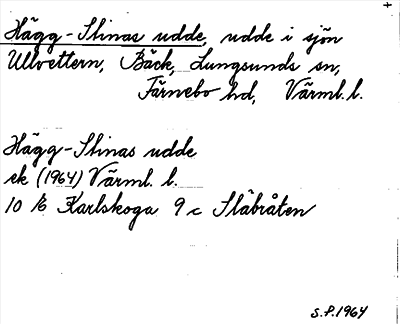 +
Hägg-Stinas udde, udde i sjön
Ullvettern, Bäck, Lungsunds sn,
Färnebo hd, Värml. l.
Hägg-Stinas udde
ek (1964) Värml. l.
10 E Karlskoga 9 c Släbråten
S.P. 1964